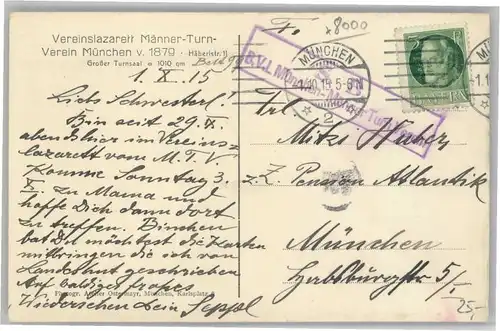 Vereinslazarett Männer-Turn-
Verein München v. 1879 · Häberlstr. 11
Großer Turnsaal 1010 qm Bett 94
1. X. 15
Liebs Schwesterl!
Bin seit 29. IX.
abends hier im Vereins-
lazarett vom M.T.V.
Komme Sonntag 3.
X. zu Mama und
hoffe Dich dann dort
zu treffen. Binchen
bat Du möchtest die Karten
mitbringen die ich von
Landshut geschrieben
Auf baldiges frohes
Wiedersehen Dein Sepperl.
Photogr. Ostermayr, München, Karlsplatz 6
Fr.
x 8000
MÜNCHEN
5-6
2
B.V.L. Männer-Turn-Verein
BAYERN
Frl.
Mitzi Huber
z. Z. Pension Atlantik
München
Habsburgstr 5/I.
25,-